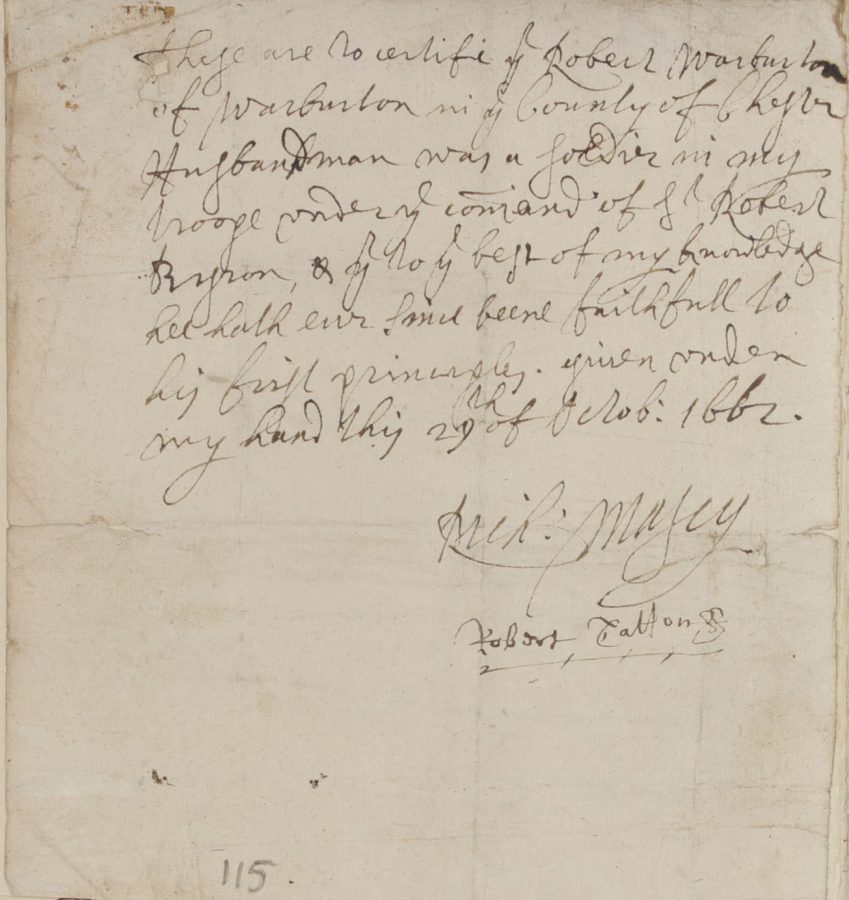 These are to certifie yt Robert Warburton
of Warburton in ye County of Chester
Husbandman was a soldier in my
troope under ye comand of Sr Robert
Byron, & yt to ye best of my knowledge
hee hath ever since beene faithfull to
his first principles. given under
my hand this 29th of Octob: 1662.
Rich: Masey
Robert Tatton
115.